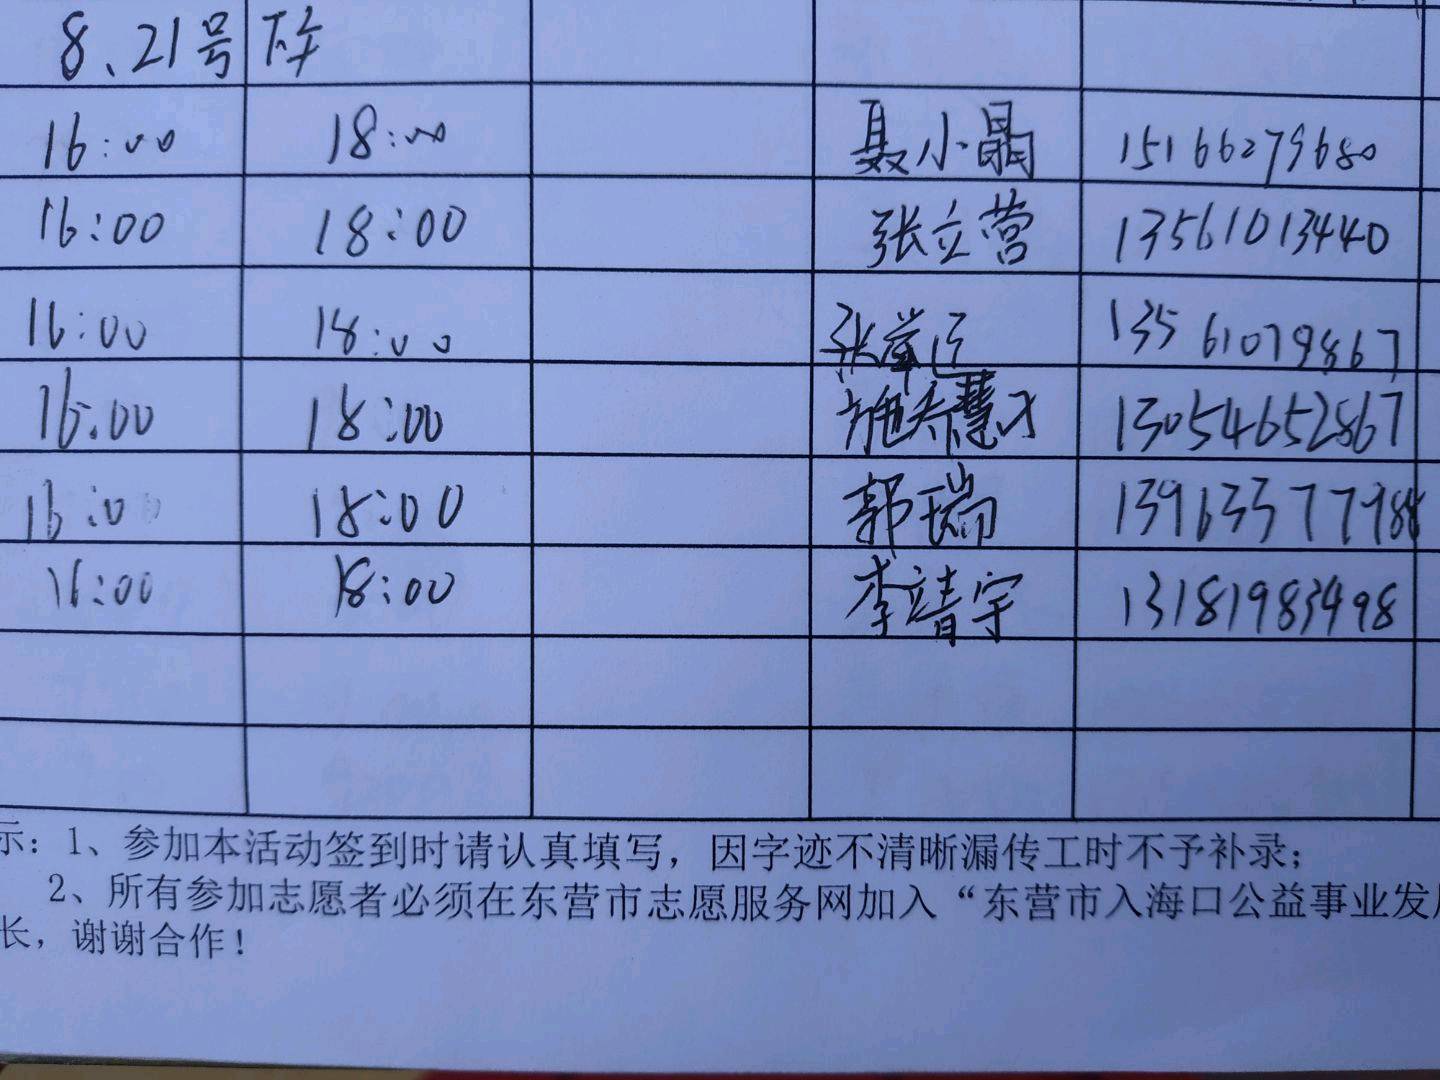 8、21号 下午
16:00 18:00 聂小晶 15166279680
16:00 18:00 张立营 13561013440
16:00 18:00 张 13561079867
16:00 18:00 13054652867
16:00 18:00 郭瑞 13963377988
16:00 18:00 李靖宇 13181983498
示：1、参加本活动签到时请认真填写，因字迹不清晰漏传工时不予补录；
2、所有参加志愿者必须在东营市志愿服务网加入“东营市入海口公益事业发
长，谢谢合作！